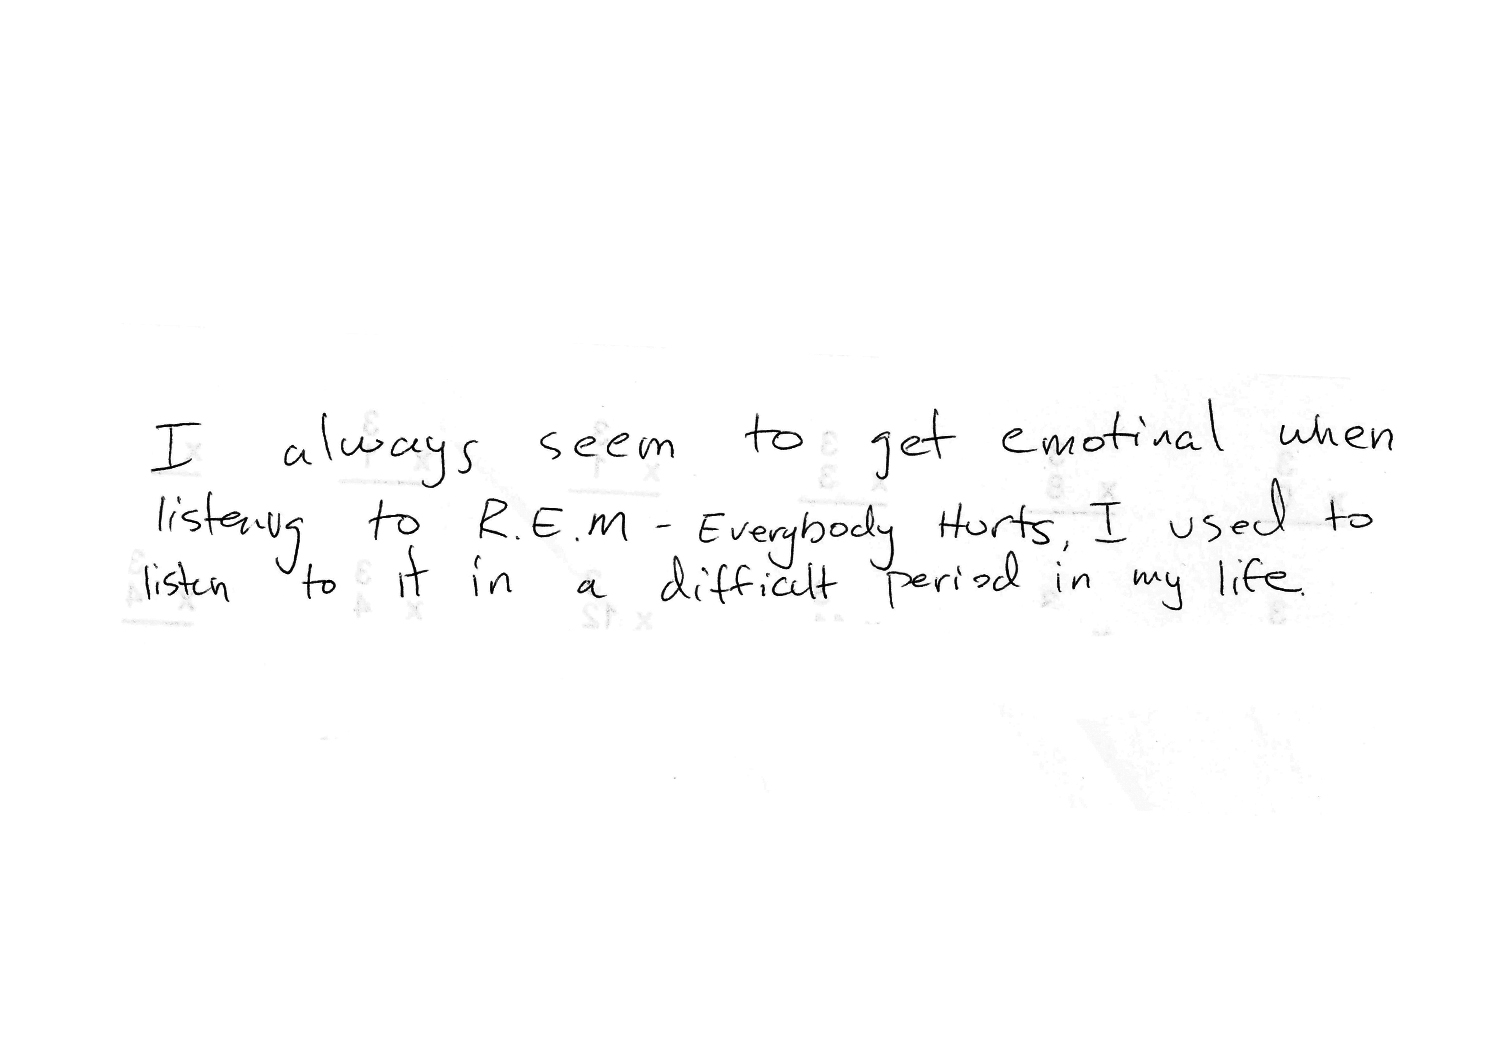 I always seem to get emotinal when
listenug to R.E.M - Everybody Hurts, I used to
listen to it in a difficult period in my life.